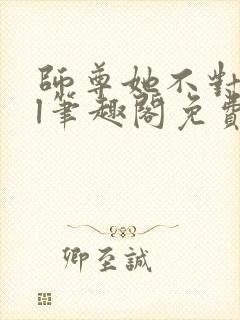 師尊她不對
l筆趣閣免費
卿至誠